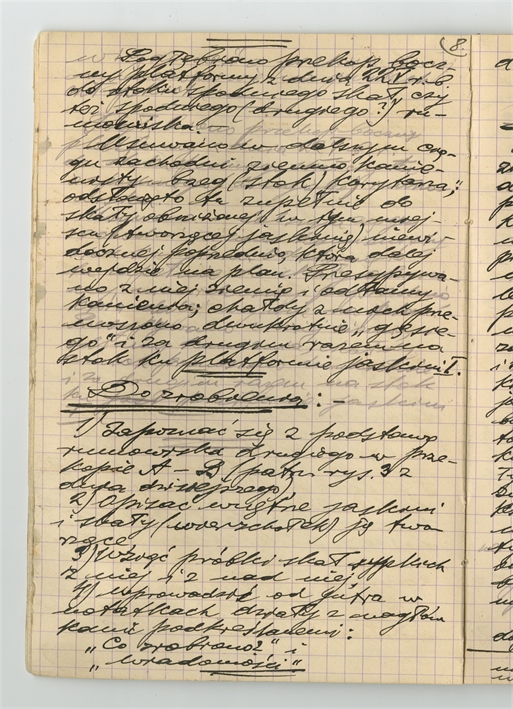 8.
Pogłębiono przekop bocz-
ny platformy z dnia
do stoku spodniego skały czy
też spodniego (drugiego?) ru-
mowiska.
Usuwano w dalszym cią-
gu zachodni ziemno kamie-
nisty brzeg (stok) "Korytarza";
odsłonięto tu zupełnie do
skały obniżonej w tym miej-
scu (tworzącej jaskinię) niewi-
docznej poprzednio, która dalej
wejdzie na plan. Przesypywa-
no z niej ziemię i odłamy
kamienia; okazały z nich prze-
noszono dwukrotnie
go" i za drugim razem na
stok ku platformie jaskini I.
Do zrobienia: -
1) Zapoznać się z podstawą
rumowiska drugiego w prze-
kopie A - B (patrz rys. 3 z
dnia dzisiejszego)
2) Opisać wnętrze jaskini
i skały (wierzchołek) ją two-
rzącej
3) Wziąć próbki skał sypkich
z niej i z nad niej
4) Wprowadzić od jutra w
notatkach działy z nagłów-
kami podkreślanemi:
"Co zrobiono?" i
"Wiadomości"